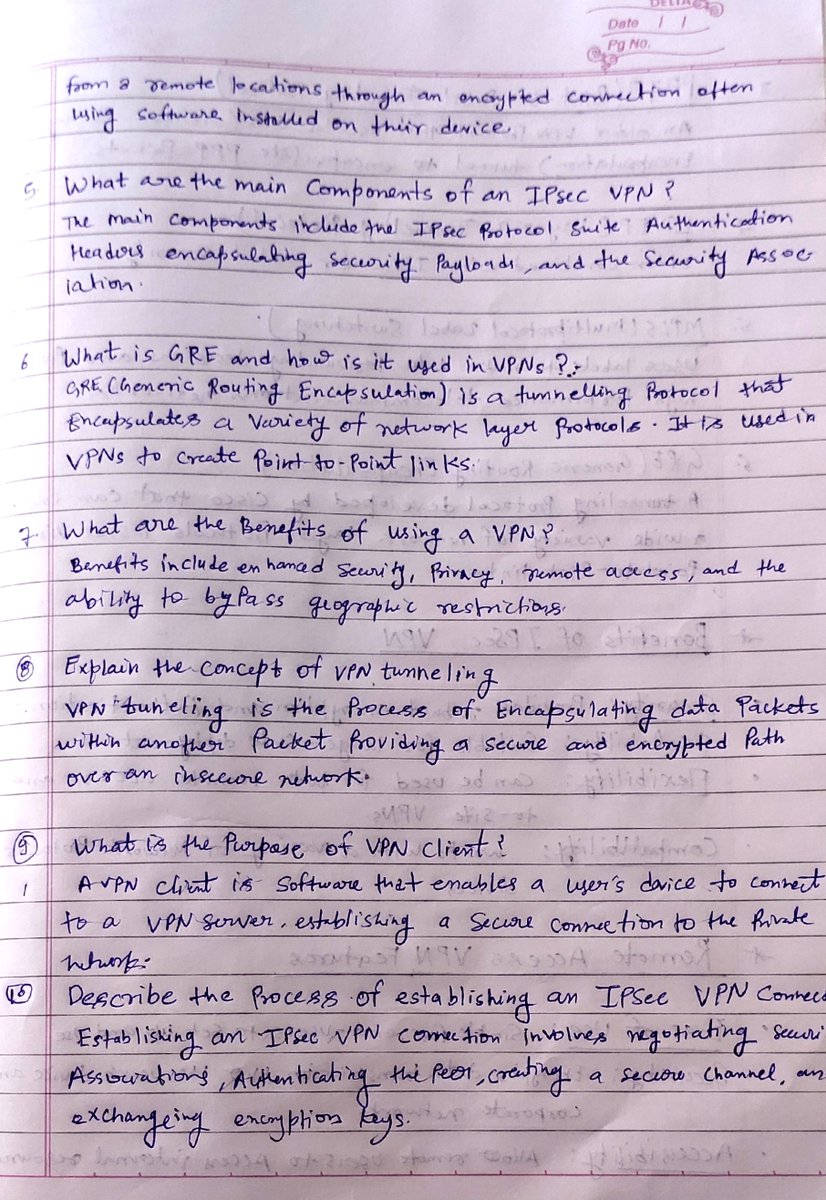 DELTA
Date / /
Pg No.
from a remote locations through an encrypted connection often
using software installed on their device.
5. What are the main Components of an IPsec VPN ?
The main components include the IPsec Protocol Suite Authentication
Headers encapsulating security Payloads, and the Security Assoc-
iation.
6 What is GRE and how is it used in VPNs ?:-
GRE (Generic Routing Encapsulation) is a tunnelling Protocol that
Encapsulates a variety of network layer Protocols. It is used in
VPNs to create Point-to-Point links.
7. What are the Benefits of using a VPN ?
Benefits include enhanced Security, Privacy, remote access, and the
ability to byPass geographic restrictions.
8 Explain the concept of VPN tunneling
VPN tuneling is the Process of Encapsulating data Packets
within another Packet Providing a secure and encrypted Path
over an insecure network.
9 What is the Purpose of VPN Client ?
1 A VPN client is Software that enables a user's device to connect
to a VPN server, establishing a Secure connection to the Private
network.
10 Describe the Process of establishing an IPSec VPN Connec
Establishing an IPsec VPN connection involves negotiating Securi
Associations, Authenticating the Peer, creating a secure channel, an
exchangeing encryption keys.